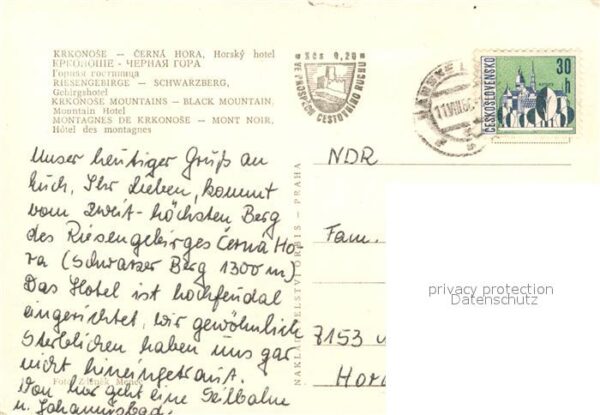 KRKONOŠE — ČERNÁ HORA, Horský hotel
КРКОНОШЕ - ЧЕРНАЯ ГОРА
Горная гостиница
RIESENGEBIRGE — SCHWARZBERG,
Gebirgshotel
KRKONOŠE MOUNTAINS — BLACK MOUNTAIN,
Mountain Hotel
MONTAGNES DE KRKONOŠE — MONT NOIR,
Hôtel des montagnes
Unser heutiger Gruß an
Euch, Ihr Lieben, kommt
vom zweit-höchsten Berg
des Riesengebirges Černá Ho-
ra (Schwarzer Berg 1300 m)
Das Hotel ist hochfeudal
eingerichtet, wir gewöhnlich
Sterblichen haben uns gar
nicht hineingetraut.
Von hier geht eine Seilbahn
n. Johannisbad.
Foto Zdeněk
NAKLADATELSTVÍ ORBIS — PRAHA
Kčs 0,20
VE PROSPĚCH CESTOVNÍHO RUCHU
30
h
ČESKOSLOVENSKO
NDR
Fam.
privacy protection
Datenschutz
7153